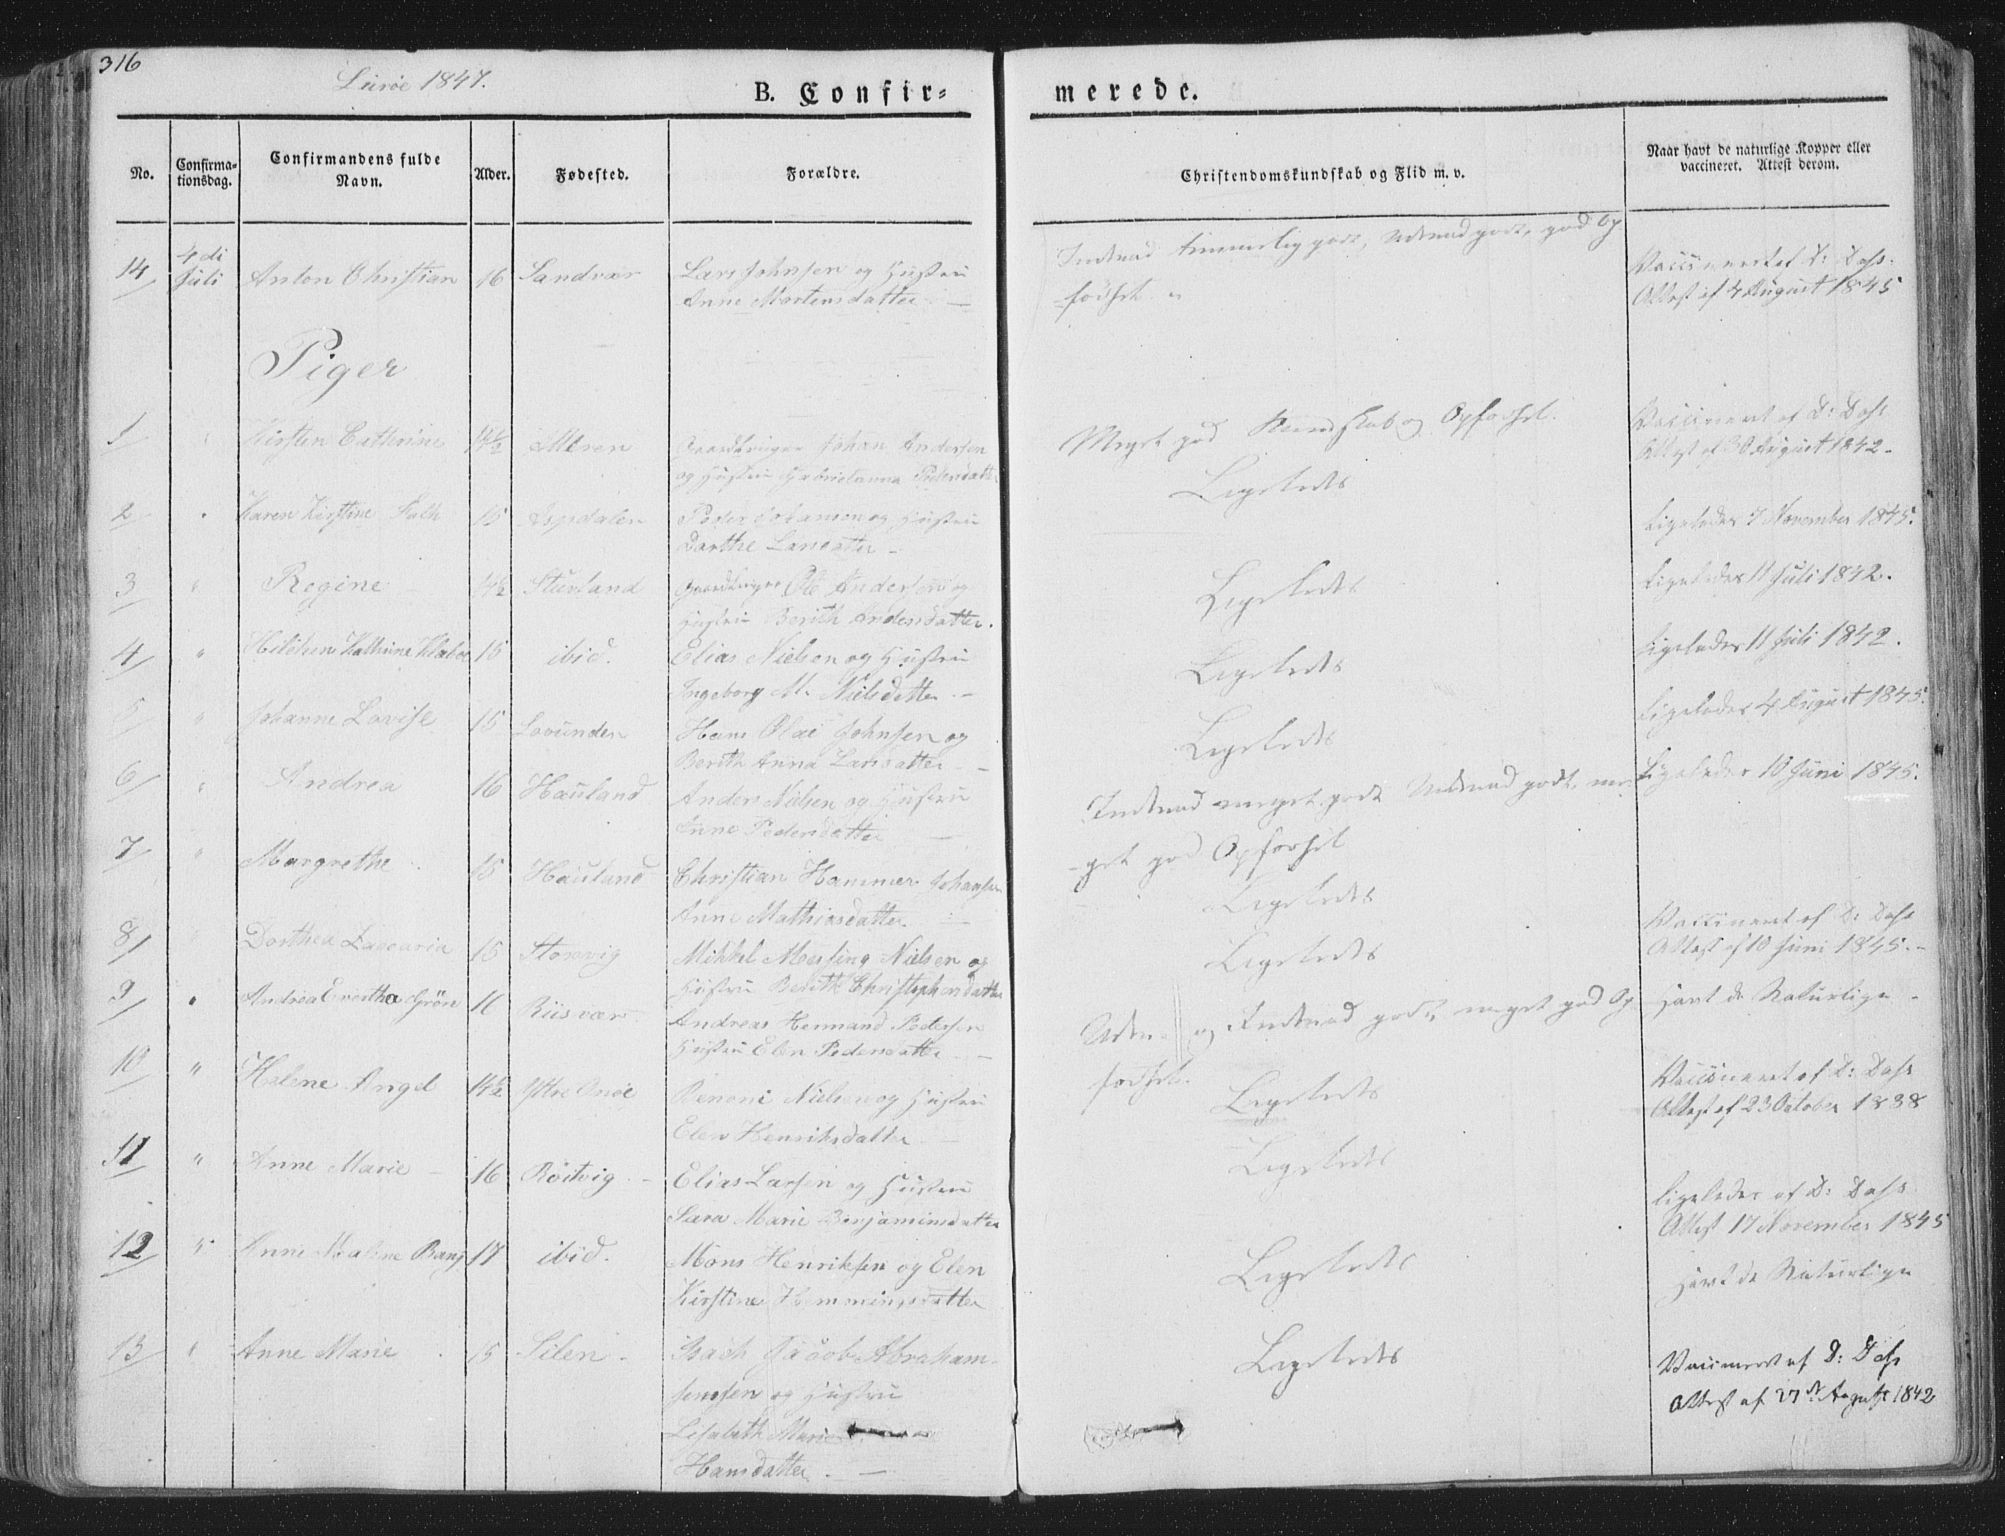 316
Lurøe 1847.
B. Confir=
merede.
No.
Confirma-
tionsdag.
Confirmandens fulde
Navn.
Alder.
Fødested.
Forældre.
Christendomskundskab og Flid m. v.
Naar havt de naturlige Kopper eller
vaccineret. Attest derom.
14 4di Juli Anton Christian 16 Sandvær Lars Johnsen og Hustru
Anne Mortensdatter. —
Indenad temmelig godt, Udenad godt, god Op
førsel
Vaccineret af D: Dahs
Attest af 4 August 1845
Piger
1 " Kirsten Cathrine 14½ Aleren Gaardbruger Johan Andersen
og Hustru Gabrielanna Pedersdatter
Meget god Kundskab og Opførsel.
Vaccineret af D: Dahs
Attest af 30 August 1842.
2 " Karen Kirstine Falk 15 Aspdalen Peder Johansen og Hustru
Dorthe Larsdatter —
Ligeledes
Ligeledes 7 November 1845.
3 " Regine 14½ Stuvland Gaardbruger Ole Andersen og
Hustru Berith Andersdatter.
Ligeledes
Ligeledes 11 Juli 1842.
4 " Kathrine Klæboe 15 ibid. Elias Nielsen og Hustru
Ingeborg M. Nielsdatter. —
Ligeledes
Ligeledes 11 Juli 1842.
5 " Johanne Lovise 15 Lovunden Hans Olai Johnsen og
Berith Anna Larsdatter —
Ligeledes
Ligeledes 4 August 1845.
6 " Andrea 16 Hauland Anders Nielsen og Hustru
Anne Pedersdatter —
Indenad meget godt Udenad godt, me-
get god Opførsel
Ligeledes 10 Juni 1845.
7 " Margrethe 15 Hauland Christian Hammer Johansen
Anne Mathiasdatter —
Ligeledes
8 " Dorthea Zacaria 15 Storvig Mikkel Meesling Nielsen og
Hustru Berith Christophersdatter
Ligeledes
Vaccineret af D: Dahs
Attest af 10 Juni 1845. —
9 " Andrea Evertha Grön 16 Riisvær Andreas Hemmand Pedersen
Hustru Elen Pedersdatter —
Uden- og Indenad godt, meget god Op
førsel.
Havt de Naturlige —
10 " Helene Angel 14½ Ytre Onøe Benoni Nielsen og Hustru
Elen Henriksdatter —
Ligeledes
Vaccineret af D: Dahs
Attest af 23 October 1838
11 " Anne Marie — 16 Röitvig — Elias Larsen og Hustru
Sara Marie Benjaminsdatter
Ligeledes
Ligeledes af D: Dahs
Attest 17 November 1845
12 " Anne Maline Bang 17 ibid. Mons Henriksen og Elen
Kirstine Hemmingsdatter
Ligeledes
Havt de Naturlige
13 " Anne Marie 15 Silen. Isach Jacob Abraham-
sensen og Hustru
Lisabeth Marie
Hansdatter. —
Ligeledes
Vaccineret af D: Dahs
Attest af 27de August 1842